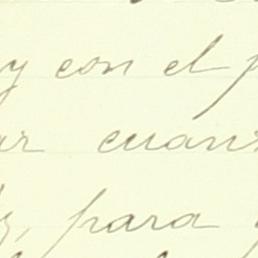 y con el p
ar cuan
z, para